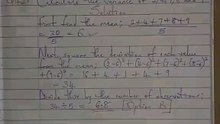 Calculate the variance of
Solution
First find the mean; 2+4+7+8+9
5
= 30/5 = 6
Next, square the deviation of each value
from the mean; (2-6)² + (4-6)² + (7-6)² + (8-6)²
+ (9-6)² = 16 + 4 + 1 + 4 + 9
= 34
Divide this by the number of observations;
34 ÷ 5 = 6.8 [Option A]